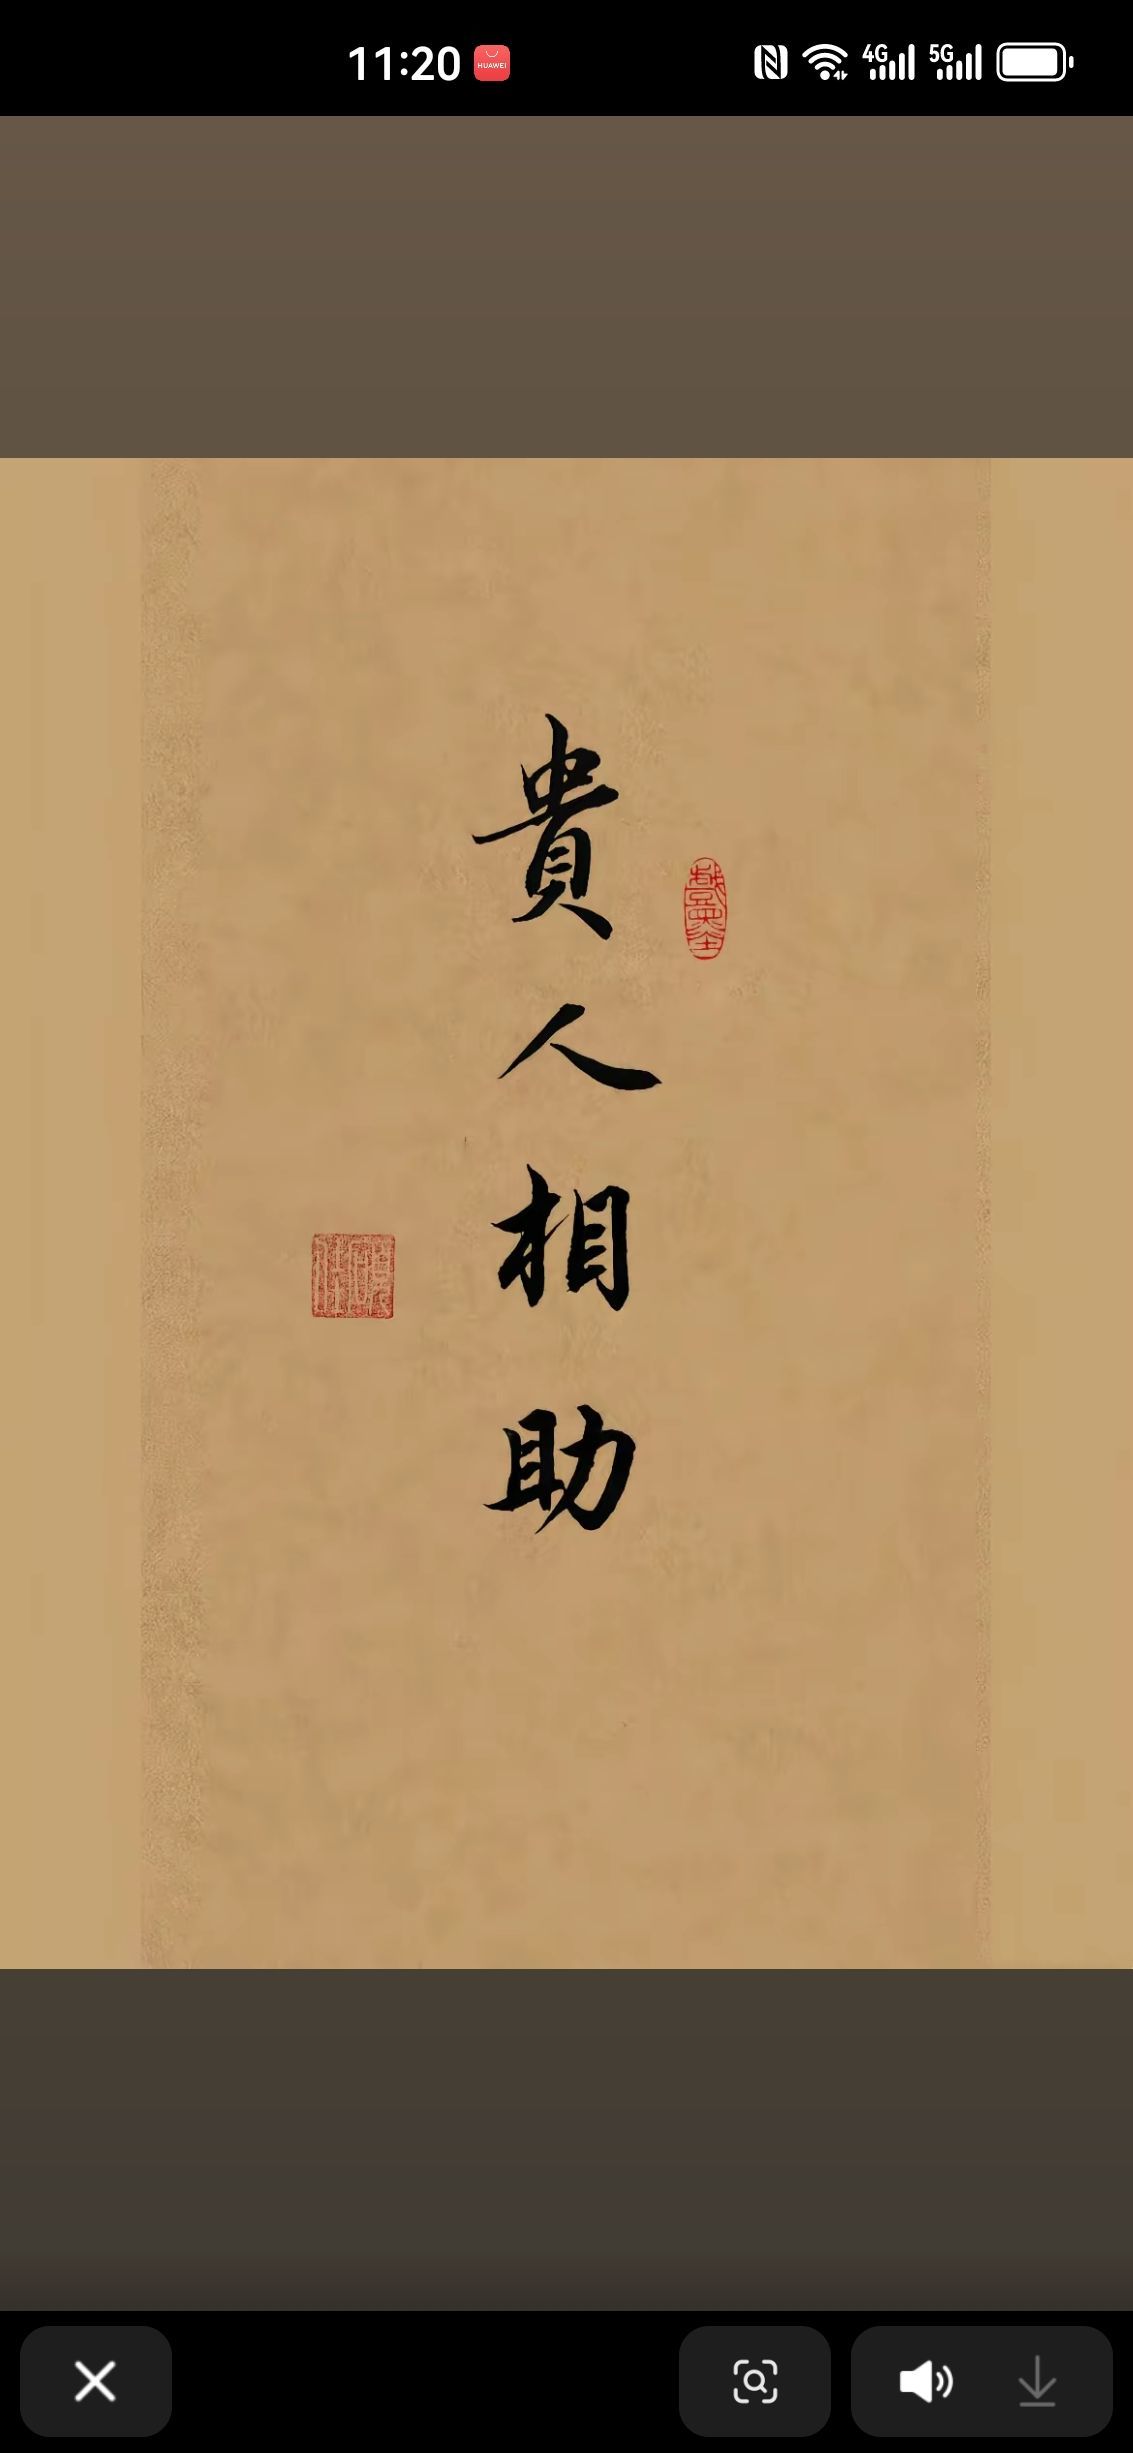 11:20
HUAWEI
4G
5G
貴人相助